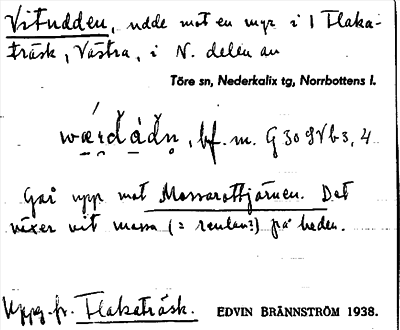 Vitudden, udde mot en myr i l Flaka-
träsk, Västra, i N. delen av
Töre sn, Nederkalix tg, Norrbottens l.
bf. m. G 30 g V b 3, 4
Går upp mot Massarottjärnen. Det
växer vit massa (= renlav?) på heden.
Uppg. fr. Flakaträsk.
EDVIN BRÄNNSTRÖM 1938.